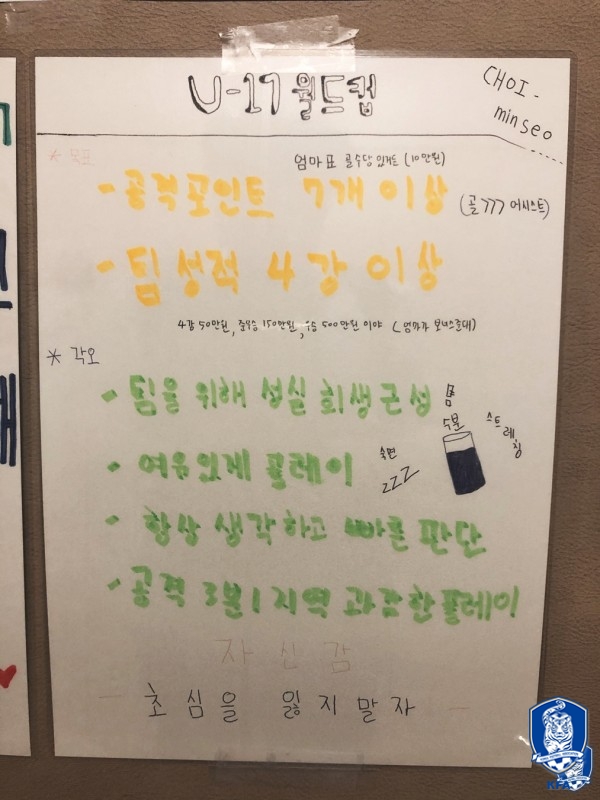 U-17 월드컵
CHOI -
minseo
* 목표
엄마표 골수당 있거든 (10만원)
- 공격포인트 7개 이상 (골 >>> 어시스트)
- 팀 성적 4강 이상
4강 50만원, 준우승 150만원, 우승 500만원 이야 (엄마가 보너스준대)
* 각오
- 팀을 위해 성실 희생 근성
몸
수분
스트레칭
- 여유있게 플레이
숙면
zzz
- 항상 생각하고 빠른 판단
- 공격 3분1 지역 과감한 플레이
자신감
- 초심을 잃지말자 -
KFA